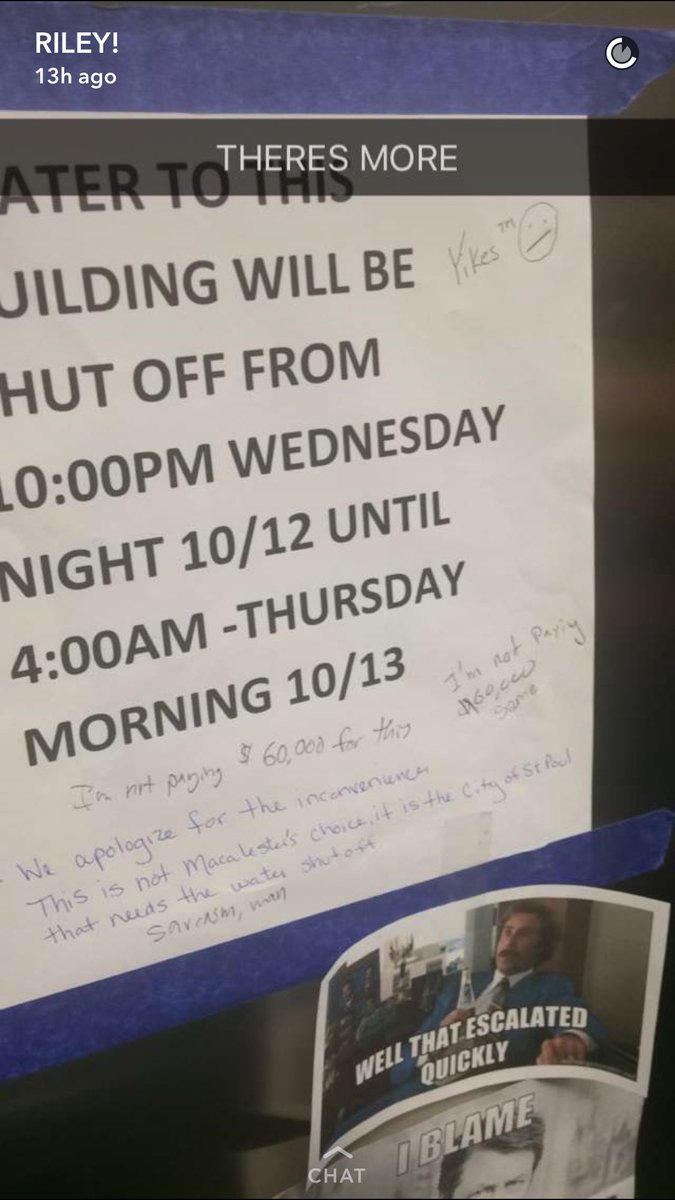 RILEY!
13h ago
THERES MORE
ATER TO THIS
UILDING WILL BE
HUT OFF FROM
10:00PM WEDNESDAY
NIGHT 10/12 UNTIL
4:00AM -THURSDAY
MORNING 10/13
Yikes™
I'm not paying
$60,000
same
I'm not paying $ 60,000 for this
- We apologize for the inconvenience
This is not Macalester's choice, it is the City of St Paul
that needs the water shut off
Sarcasm, man
WELL THAT ESCALATED
QUICKLY
I BLAME
CHAT